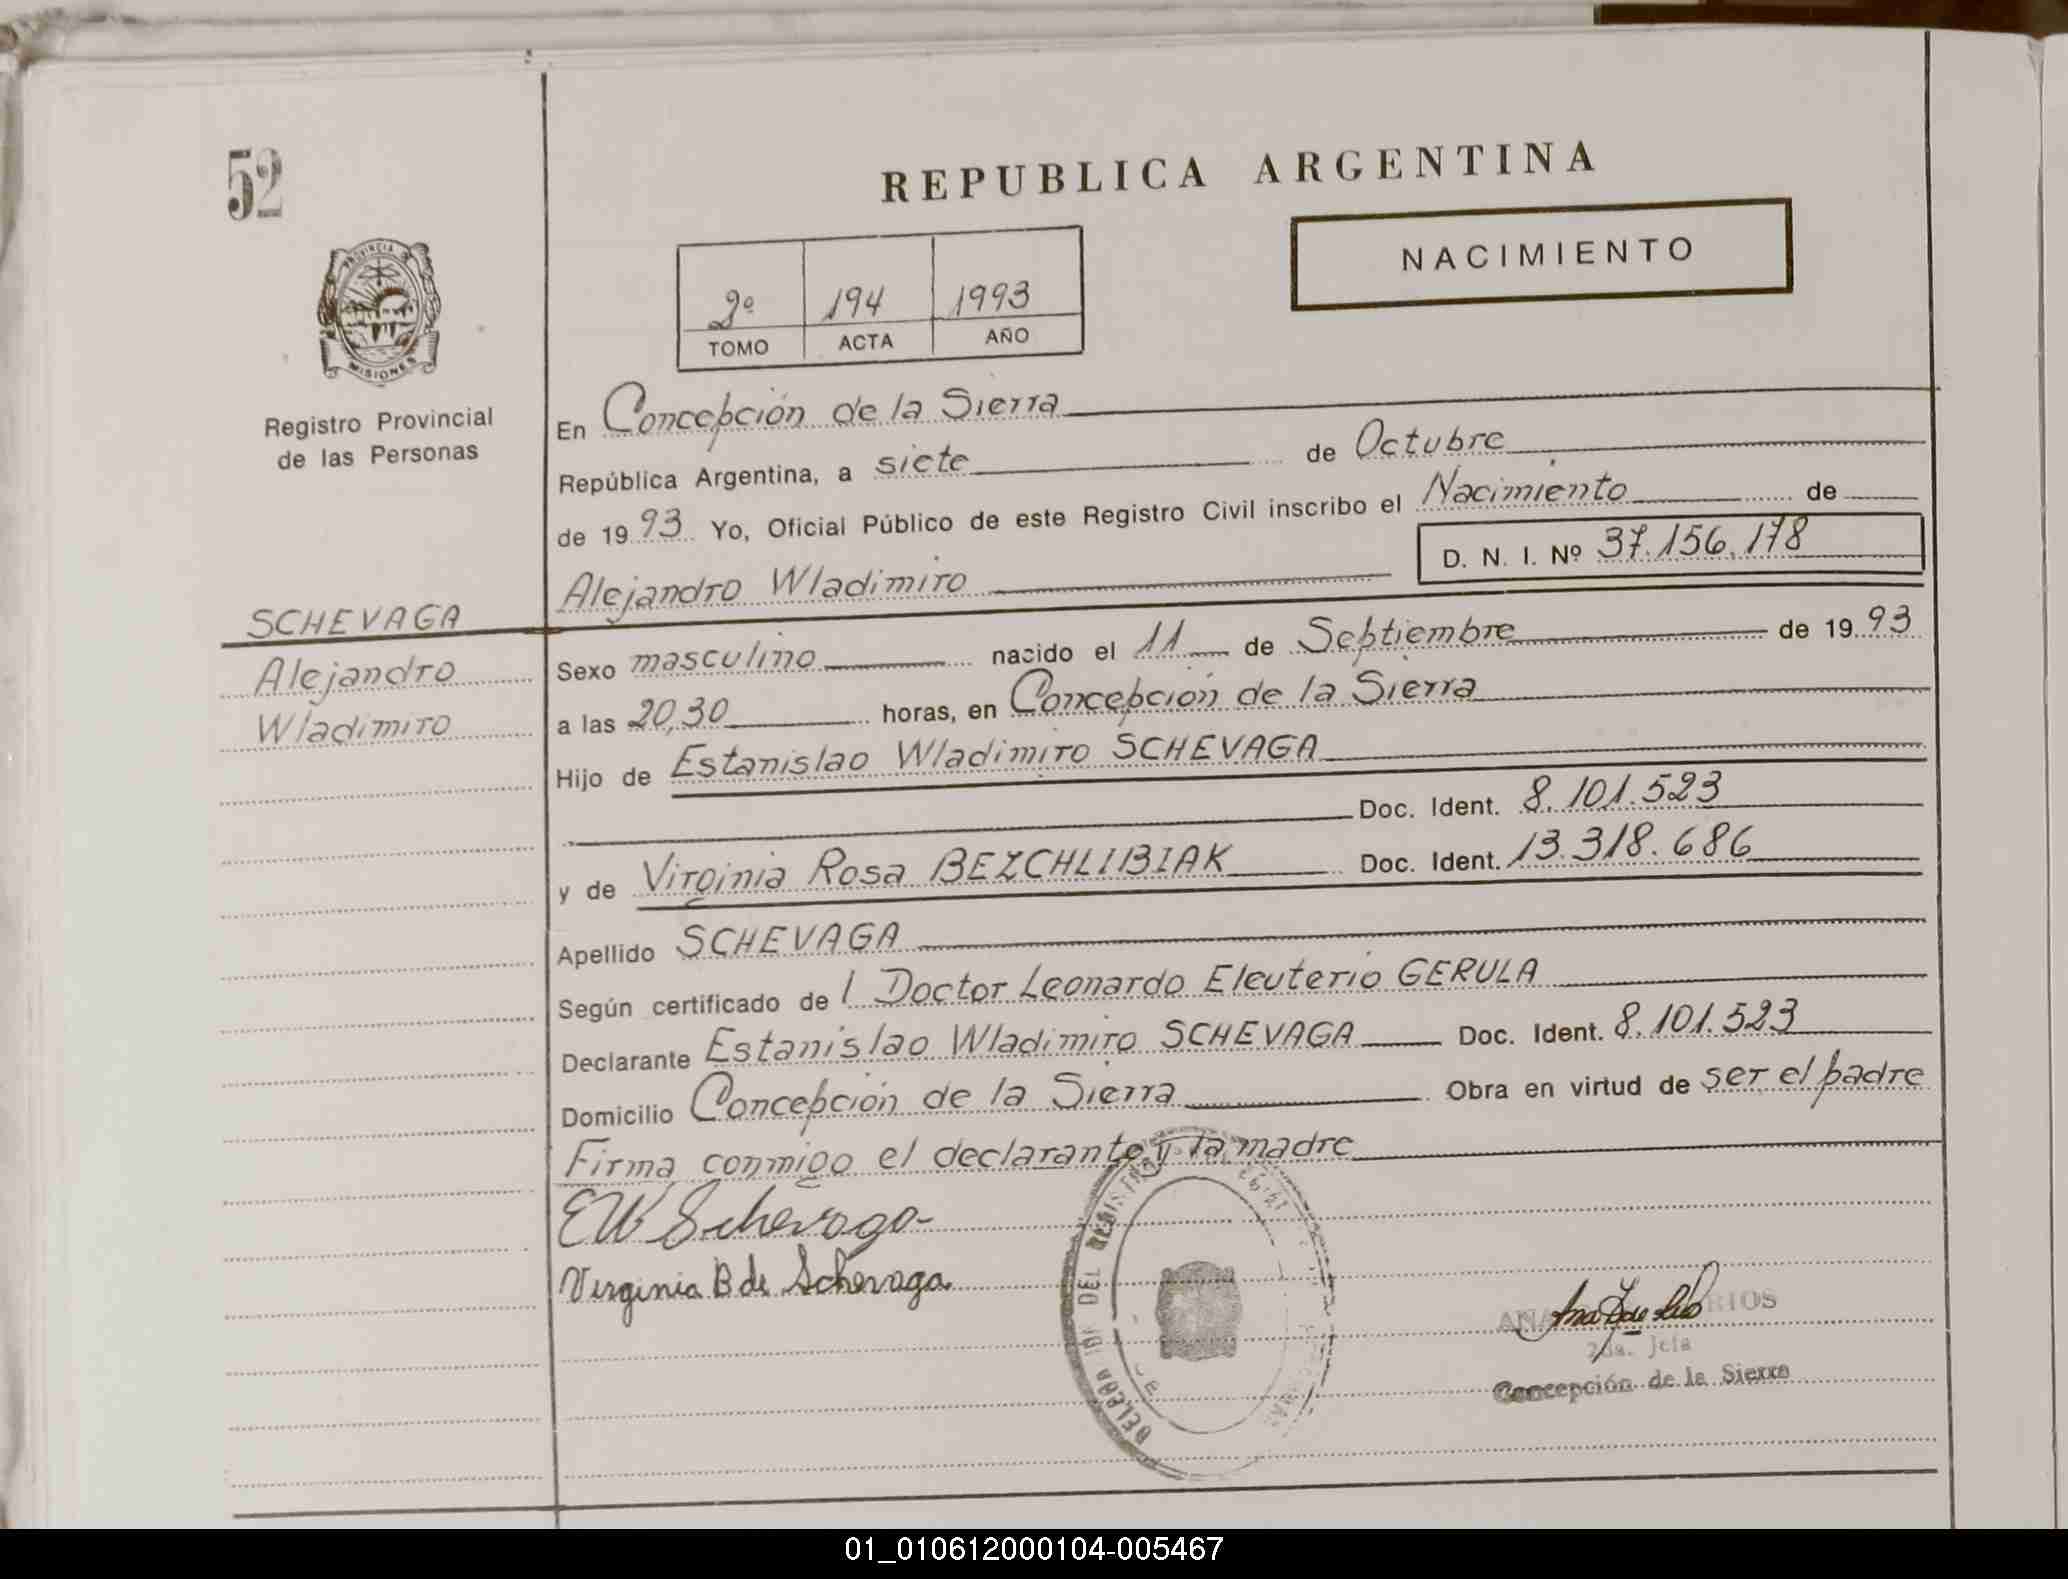 52
REPUBLICA ARGENTINA
NACIMIENTO
2º 194 1993
TOMO ACTA AÑO
PROVINCIA
MISIONES
Registro Provincial
de las Personas
SCHEVAGA
Alejandro
Wladimiro
En Concepción de la Sierra
República Argentina, a siete de Octubre
de 1993 Yo, Oficial Público de este Registro Civil inscribo el Nacimiento de
D. N. I. Nº 37.156.178
Alejandro Wladimiro
Sexo masculino nacido el 11 de Septiembre de 1993
a las 20,30 horas, en Concepción de la Sierra
Hijo de Estanislao Wladimiro SCHEVAGA
Doc. Ident. 8.101.523
y de Virginia Rosa BEZCHLIBIAK Doc. Ident. 13.318.686
Apellido SCHEVAGA
Según certificado de l Doctor Leonardo Eleuterio GERULA
Declarante Estanislao Wladimiro SCHEVAGA Doc. Ident. 8.101.523
Domicilio Concepción de la Sierra Obra en virtud de ser el padre
Firma conmigo el declarante y la madre
EW Schevaga
Virginia B de Schevaga
DEL
ANA
2da. Jefa
Concepción de la Sierra
01_010612000104-005467